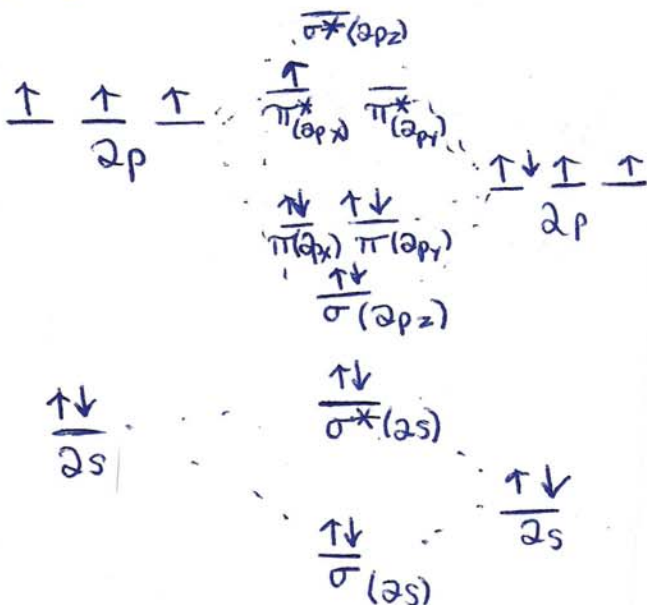 σ*(2pz)
↑ ↑ ↑
2p
↑
π*(2px) π*(2py)
↑↓ ↑ ↑
2p
↑↓ ↑↓
π(2px) π(2py)
↑↓
σ(2pz)
↑↓
2s
↑↓
σ*(2s)
↑↓
2s
↑↓
σ(2s)